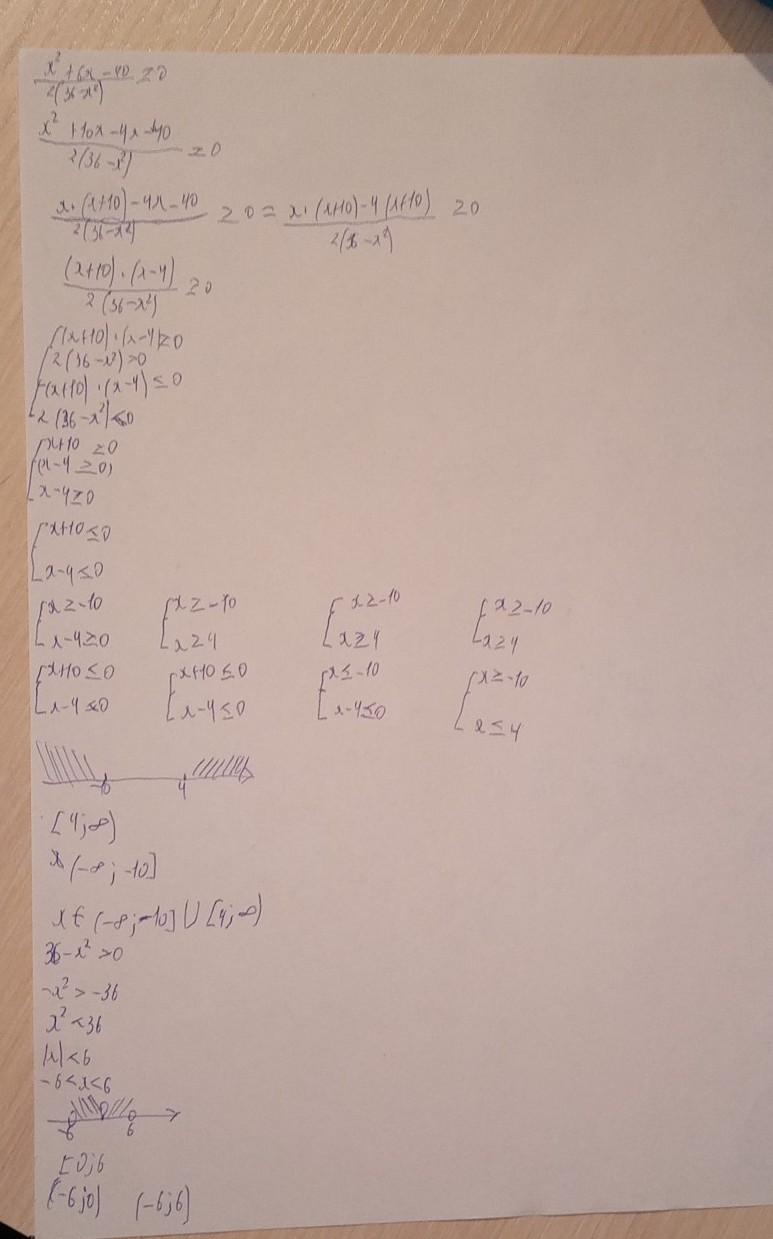 x² + 6x - 40 / 2(36-x²) ≥ 0
x² + 10x - 4x - 40 / 2(36-x²) ≥ 0
x·(x+10) - 4x - 40 / 2(36-x²) ≥ 0 = x·(x+10) - 4(x+10) / 2(36-x²) ≥ 0
(x+10)·(x-4) / 2(36-x²) ≥ 0
(x+10)·(x-4) ≥ 0
2(36-x²) > 0
(x+10)·(x-4) ≤ 0
2(36-x²) < 0
x+10 ≥ 0
(x-4 ≥ 0)
x-4 ≥ 0
x+10 ≤ 0
x-4 ≤ 0
{ x ≥ -10 { x ≥ -10 { x ≥ -10 { x ≥ -10
x-4 ≥ 0 x ≥ 4 x ≥ 4 x ≥ 4
{ x+10 ≤ 0 { x+10 ≤ 0 { x ≤ -10 { x ≥ -10
x-4 ≤ 0 x-4 ≤ 0 x-4 ≤ 0 x ≤ 4
-10 4
[4; ∞)
x (-∞; -10]
x ∈ (-∞; -10] ∪ [4; ∞)
36-x² > 0
-x² > -36
x² < 36
|x| < 6
-6 < x < 6
-6 6
[0; 6
(-6; 0) (-6; 6]